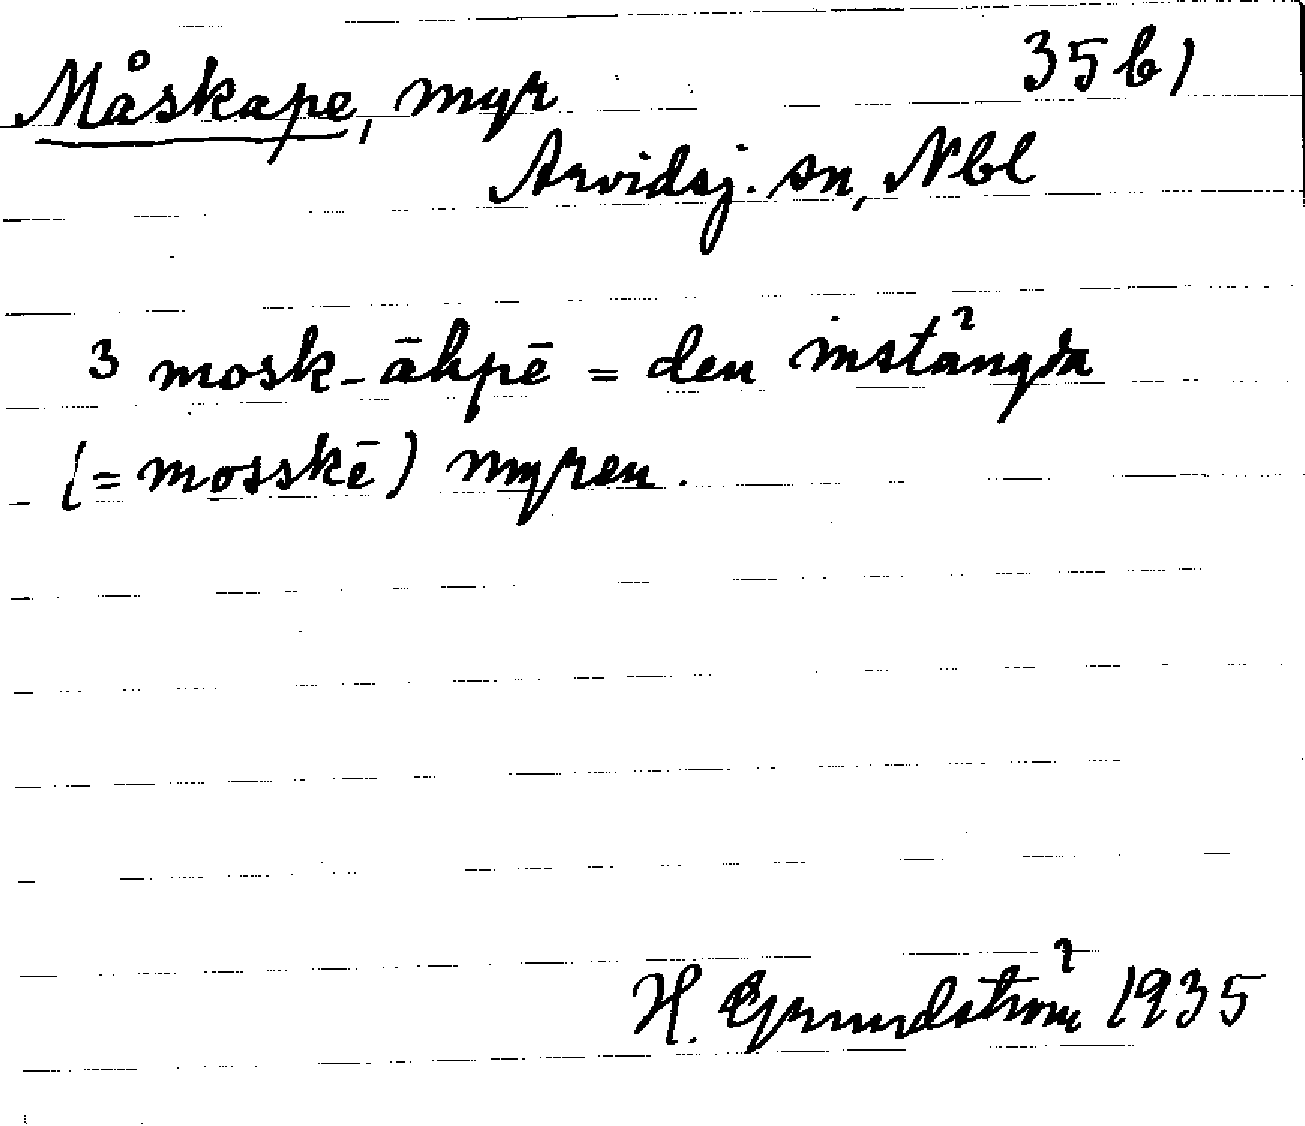 Måskape, myr 35 b)
Arvidsj. sn, Nbl
3 mosk-āhpē = den instängda
(= mosskē) myren.
H. Grundström 1935